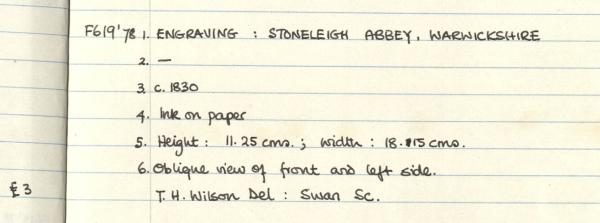 F619'78 1. ENGRAVING : STONELEIGH ABBEY, WARWICKSHIRE
2. —
3. c. 1830
4. Ink on paper
5. Height : 11.25 cms. ; width : 18.15 cms.
6. Oblique view of front and left side.
£3 T. H. Wilson Del : Swan Sc.